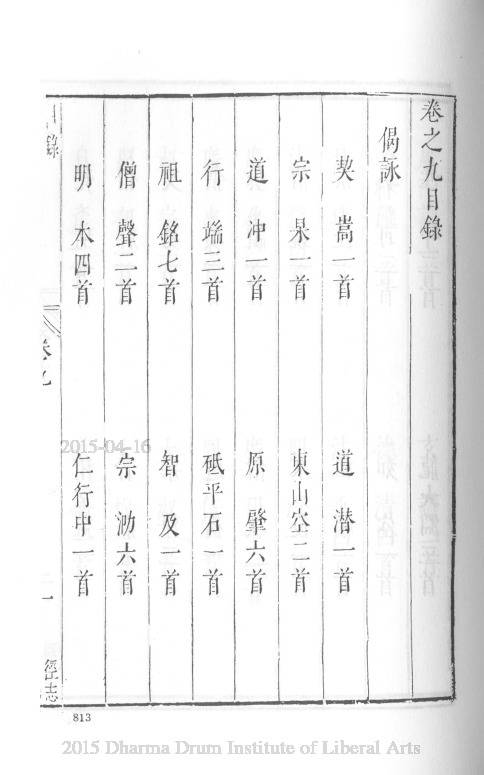 卷之九目錄
偈詠
契嵩一首 道潛一首
宗杲一首 東山空二首
道冲一首 原肇六首
行端三首 砥平石一首
祖銘七首 智及一首
僧聲二首 宗泐六首
明本四首 仁行中一首
錄
卷九
徑志
2015-04-16
813
2015 Dharma Drum Institute of Liberal Arts